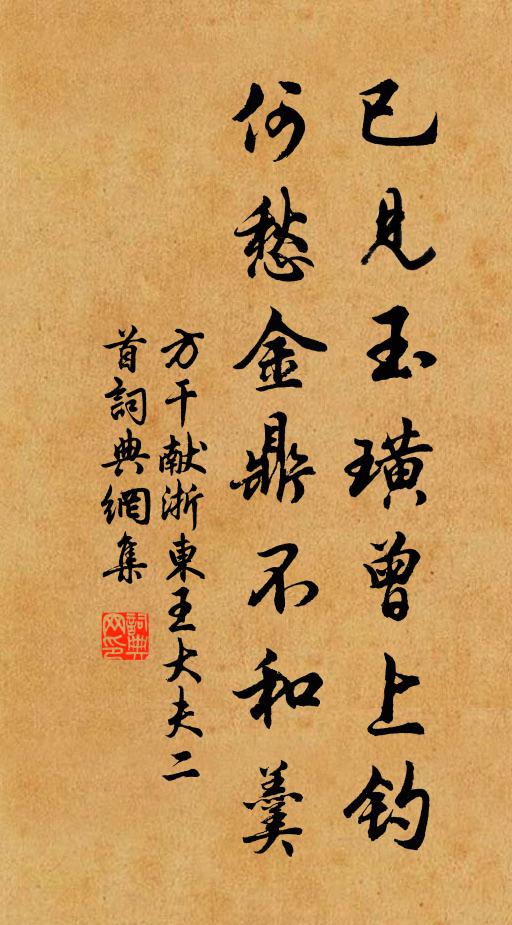 已見玉璜曾上釣
何愁金鼎不和羹
方干献浙東王大夫二
首詞典網集
詞典
网印